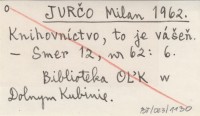 o JURČO Milan 1962.
Knihovníctvo, to je vášeň.
- Smer 12, nr 62: 6.
Biblioteka OĽK w
Dolnym Kubinie.